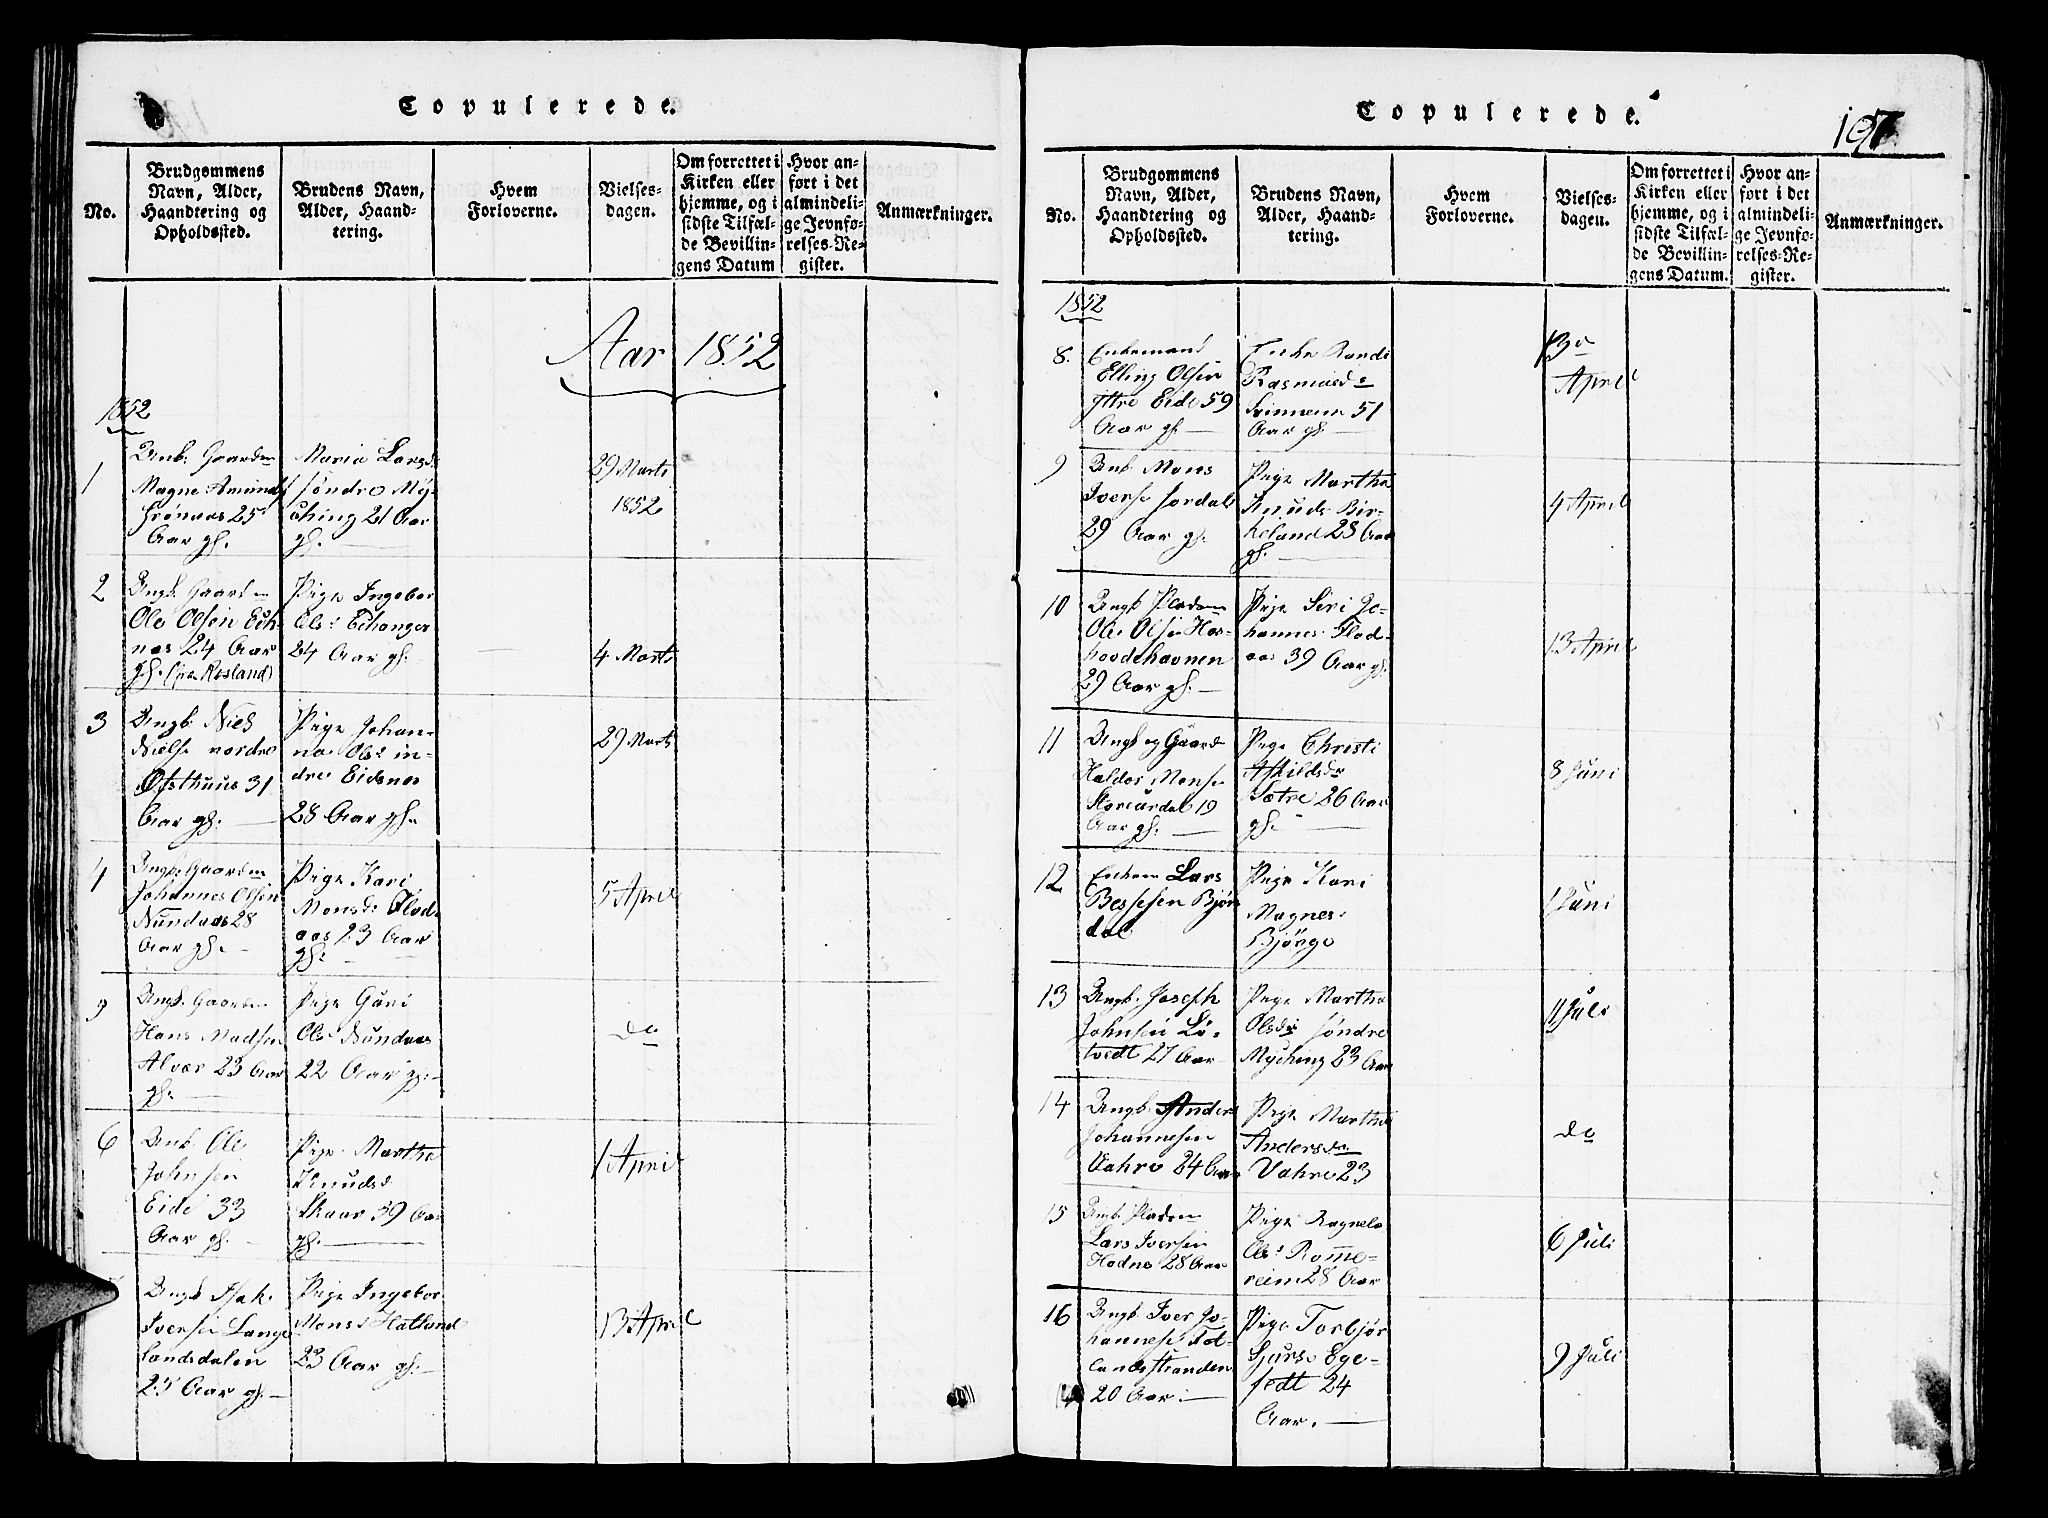 Copulerede.
No.
Brudgommens
Navn, Alder,
Haandtering og
Opholdssted.
Brudens Navn,
Alder, Haand-
tering.
Hvem
Forloverne.
Vielses-
dagen.
Om forrettet i
Kirken eller
hjemme, og i
sidste Tilfæl-
de Bevillin-
gens Datum
Hvor an-
ført i det
almindeli-
ge Jevnfø-
relses-Re-
gister.
Anmærkninger.
Aar 1852
1852
1
Unk: Gaardm
Magne Amunds
Grönaas 25
Aar gl.
Maria Larsd:
söndre My-
ching 21 Aar
gl.
29 Marts
1852
2
Ungk Gaardm
Ole Olsen Eik-
nas 24 Aar
gl. (pa Rosland)
Pige Ingebor
Ols: Eikanger
24 Aar gl.
4 Marts
3
Ungk. Niels
Nielse nordre
Ofsthuus 31
Aar gl.
Pige Johan-
na Ols: in-
dre Eidsnes
28 Aar gl.
29 Marts
4
Ungk. Gaardm
Johannes Olsen
Nundaas 28
Aar gl.
Pige Kari
Monsd: Flad-
aas 23 Aar
gl:
5 April
5
Ungk. Gaardm
Hans Madsen
Alver 23 Aar
gl.
Pige Guri
Ols: Nundaas
22 Aar gl.
do
6
Unk Ole
Johnsen
Eide 33
Aar gl.
Pige Martha
Knudsd
Skaar 39 Aar
gl.
1 April
Ungk Isak
Iversen Lange
landsdalen
25 Aar gl.
Pige Ingebor
Monsd Hatland
23 Aar gl.
13 April
Copulerede.
197
No.
Brudgommens
Navn, Alder,
Haandtering og
Opholdssted.
Brudens Navn,
Alder, Haand-
tering.
Hvem
Forloverne.
Vielses-
dagen.
Om forrettet i
Kirken eller
hjemme, og i
sidste Tilfæl-
de Bevillin-
gens Datum.
Hvor an-
ført i det
almindeli-
ge Jevnfø-
relses-Re-
gister.
Anmærkninger.
1852
8.
Enkemand
Elling Olsen
yttre Eide 59
Aar gl.
Enke Randi
Rasmusd:
Svinnem 51
Aar gl.
April
9
Unk Mons
Iverse Jordal
29 Aar gl.
Pige Martha
Knuds Bir-
keland 28 Aar
gl.
4 April
10
Ungk Pladsm
Ole Olsen Hos-
hovdehavnen
29 Aar gl.
Pige Siri Jo-
hannes: Flad-
aas 39 Aar gl.
13 April
11
Ungk og Gaard
Haldor Monse
Storeurdal 19
Aar gl.
Pige Christi
Askildsdr
Sætre 26 Aar
gl.
8 Juni
12
Enkem Lars
Bessesen Bjør
dal
Pige Kari
Magnes:
Bjørge
1 Juni
13
Ungk. Joseph
Johnsen Lö-
tvedt 27 Aar
Pige Martha
Olsdr söndre
Myching 23 Aar
11 Juli
14
Ungk. Anders
Johannesen
Vahre 24 Aar
Pige Martha
Andersdr
Vahre 23
do
15
Ungk. Pladsm
Lars Iversen
Hodne 28 Aar
Pige Ragnela
Ols: Romme-
reim 28 Aar
6 Juli
16
Ungk. Iver Jo-
hannese Tof-
landsstranden
20 Aar
Pige Torbjør
Sjurs: Ege-
fedt 24
Aar.
9 Juli